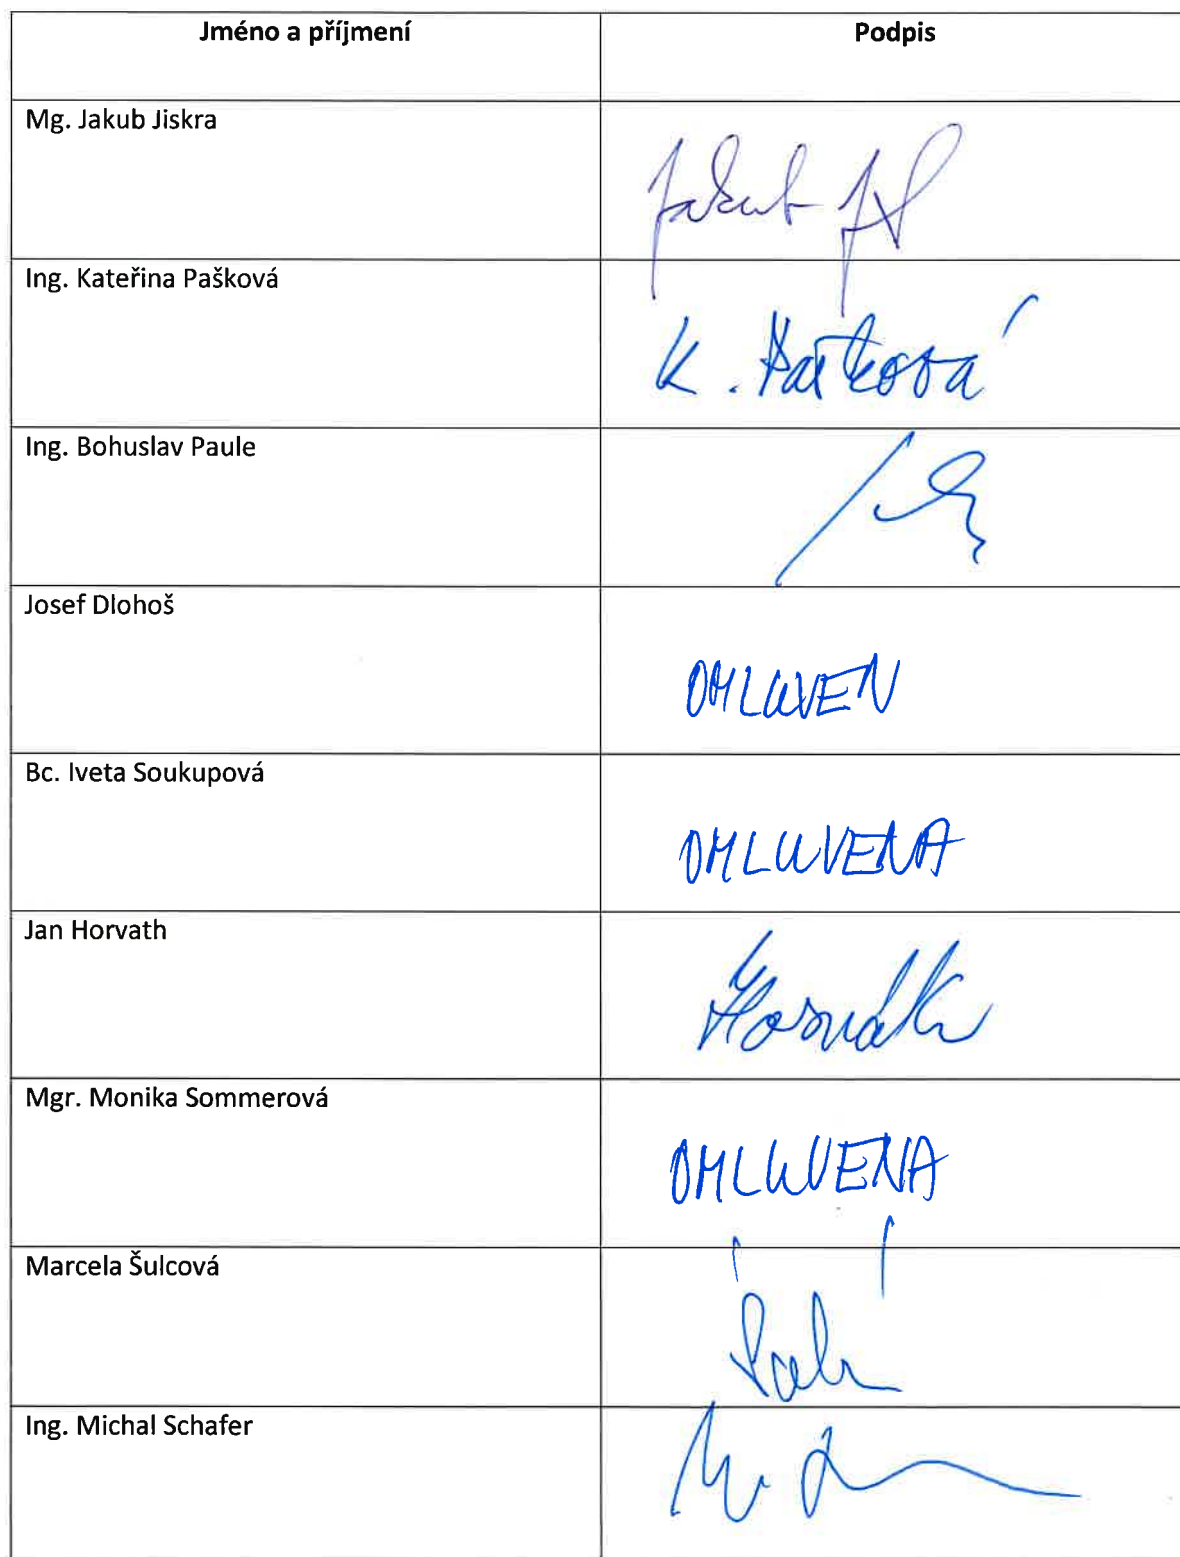 Jméno a příjmení Podpis
Mg. Jakub Jiskra
Jakub
Ing. Kateřina Pašková
K. Pašková
Ing. Bohuslav Paule
Josef Dlohoš
OMLUVEN
Bc. Iveta Soukupová
OMLUVENA
Jan Horvath
Horváth
Mgr. Monika Sommerová
OMLUVENA
Marcela Šulcová
Ing. Michal Schafer